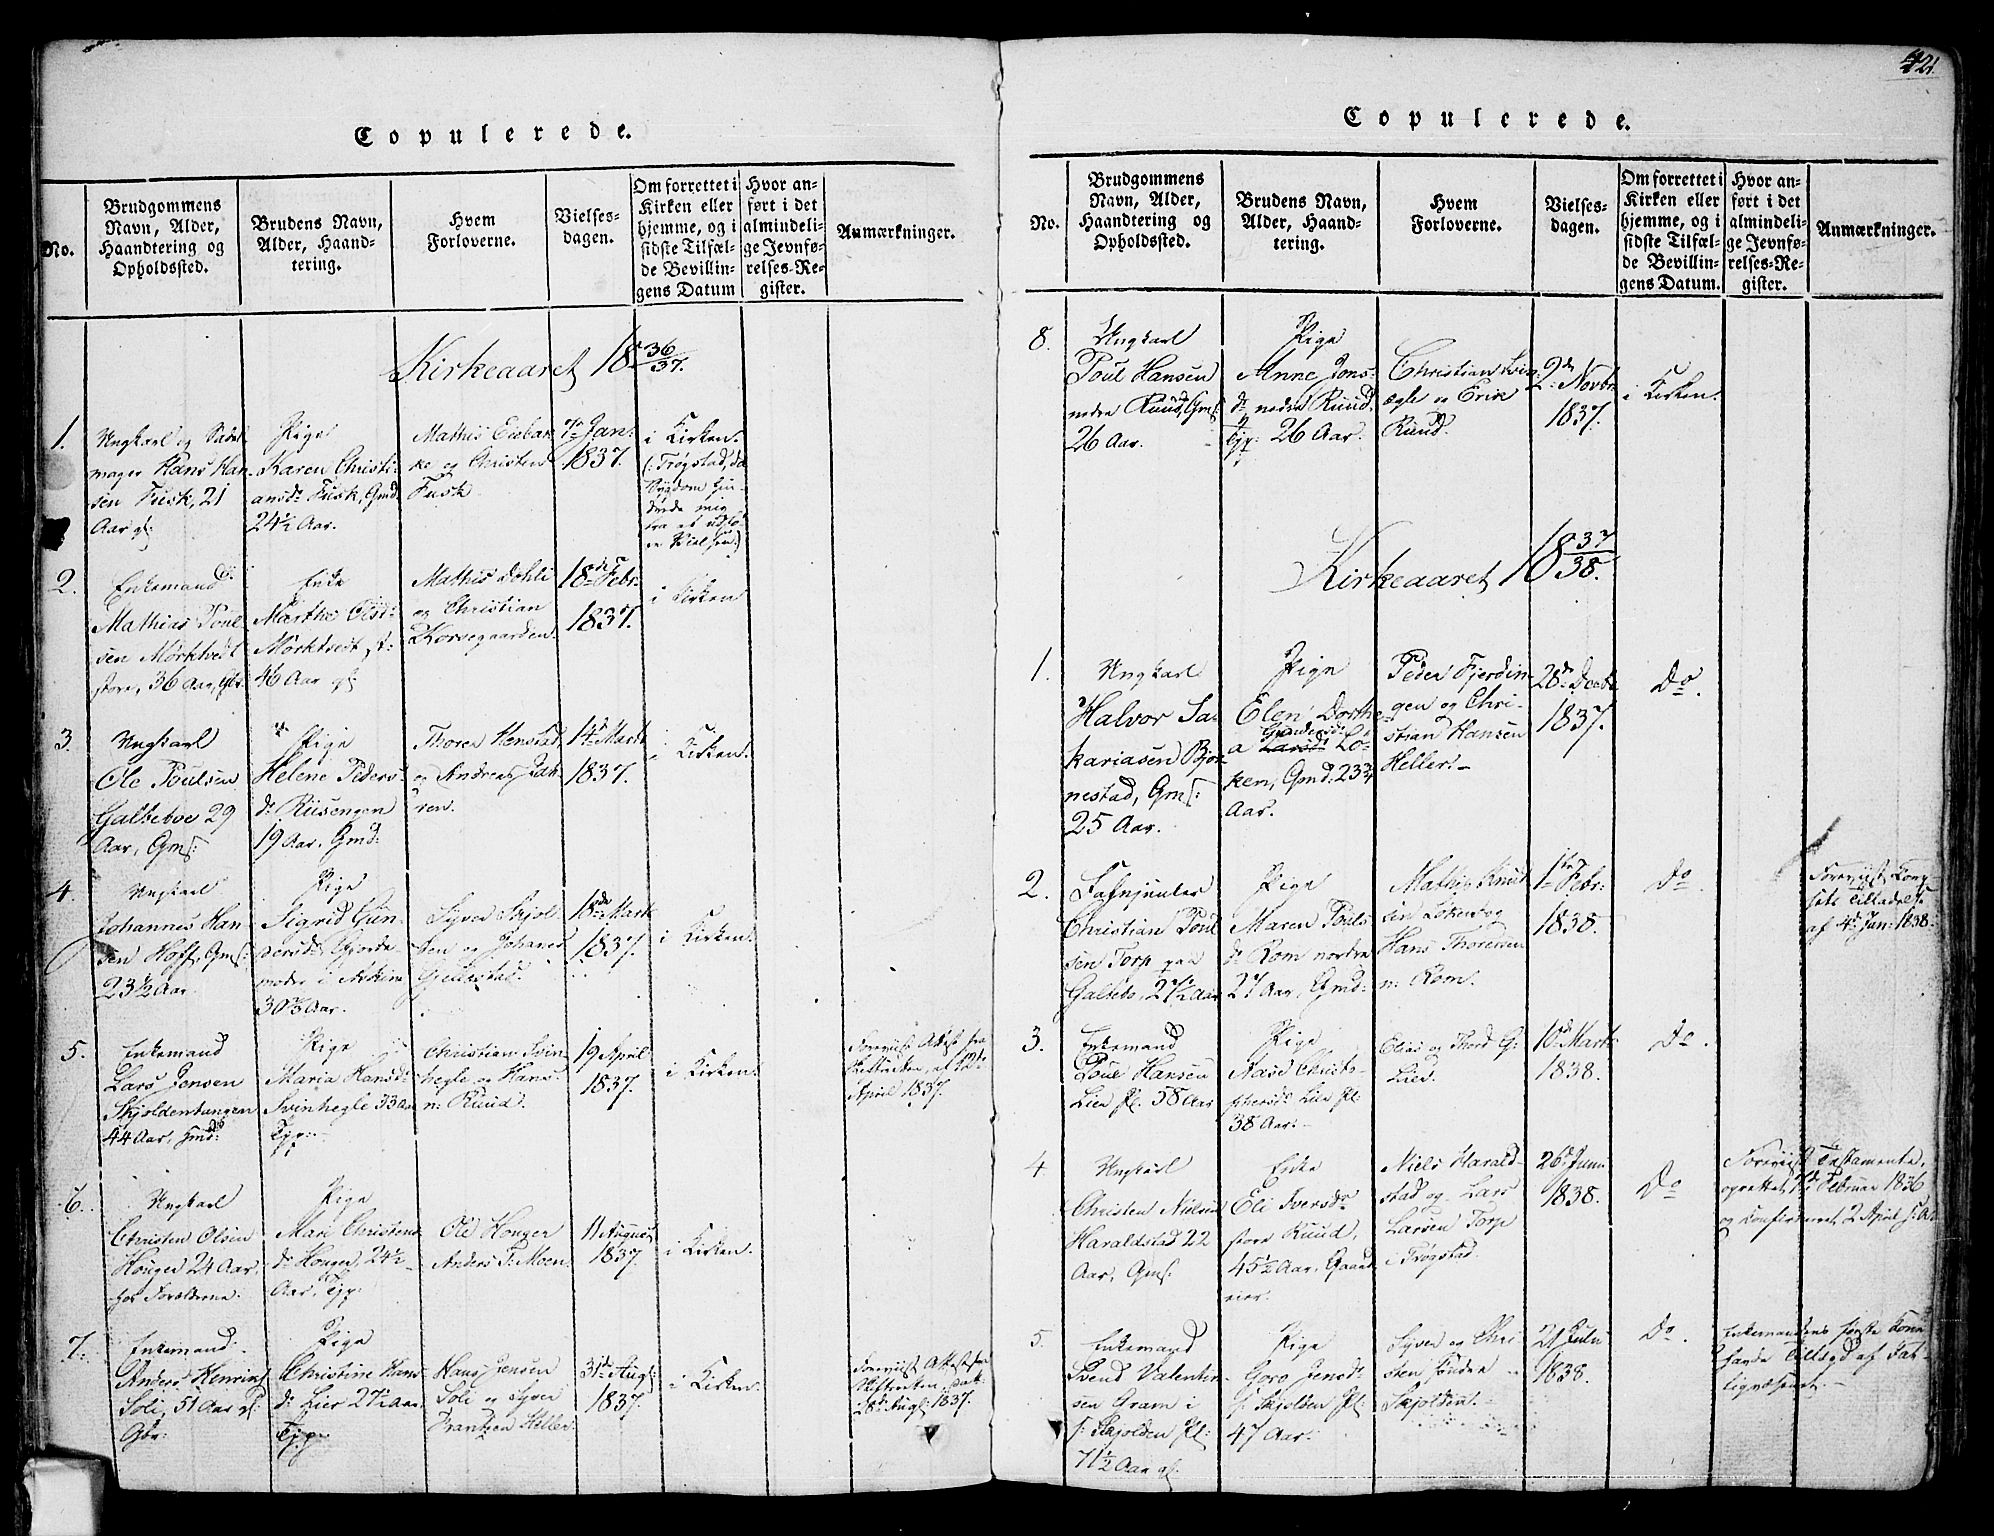 42.
Copulerede.
No.
Brudgommens
Navn, Alder,
Haandtering og
Opholdssted.
Brudens Navn,
Alder, Haand-
tering.
Hvem
Forloverne.
Vielses-
dagen.
Om forrettet i
Kirken eller
hjemme, og i
sidste Tilfæl-
de Bevillin-
gens Datum
Hvor an-
ført i det
almindeli-
ge Jevnfø-
relses-Re-
gister.
Anmærkninger.
Kirkeaaret 18 36/37.
1.
Ungkarl og Sadel
mager Hans Han
sen Fusk, 21
Aar gl:
Pige
Karen Christi-
ansd: Fusk, Gmd.
24½ Aar.
Mathis
og Christen
Fusk
7de Jan:
1837.
i Kirken.
2.
Enkemand
Mathias Poul
sen Mørktvedt
store, 36 Aar,
Enke
Marthe Olsd:
Mørktvedt st:
46 Aar gl:
Mathis Døhli
og Christian
Korsegaarden.
18de Febr:
1837.
i Kirken
3.
Ungkarl
Ole Poulsen
Galteboe 29
Aar, Gms:
Pige
Helene Peders
d: Riisengen
19 Aar. Gmd:
Thorer Henstad
og Andreas
ren.
14de Marts
1837.
i Kirken.
4.
Ungkarl
Johannes Han
sen Hoff, Gms:
23½ Aar.
Pige
Sigrid Gun-
dersd:
30 Aar.
Syver Skjol-
den og Johannes
18de Marts
1837.
i Kirken.
5.
Enkemand
Lars Jensen
Skjoldentangen
44 Aar,
Pige
Maria Hansd:
Svinhegle 33 Aar
Tjp:
Christian Svin-
hegle og Hans
n: Ruud.
19 April
1837.
i Kirken.
Foreviist Attest fra
Skifteretten, af 12de
April 1837.
6.
Ungkarl
Christen Olsen
Houger 24 Aar,
hos Forældrene.
Pige
Mari Christens
d: Houger, 24½
Aar, Tjp:
Ole Houger
Anders T: Moen.
11 August
1837.
i Kirken.
7.
Enkemand
Anders Henrics:
Soli, 51 Aar gl:
Gbr:
Pige
Christine Hans
d: Lier 27½ Aar,
Tjp:
Hans Jensen
Soli og Syver
Frantzen Heller.
31te Aug:
1837.
i Kirken.
Foreviist Attest fra
Skifteretten, dat:
28de Aug: 1837.
Copulerede.
No.
Brudgommens
Navn, Alder,
Haandtering og
Opholdssted.
Brudens Navn,
Alder, Haand-
tering.
Hvem
Forloverne.
Vielses-
dagen.
Om forrettet i
Kirken eller
hjemme, og i
sidste Tilfæl-
de Bevillin-
gens Datum.
Hvor an-
ført i det
almindeli-
ge Jevnfø-
relses-Re-
gister.
Anmærkninger.
8.
Ungkarl
Poul Hansen
nedre Ruud, Gms:
26 Aar.
Pige
Anne Jens:
d: nedre Ruud,
Tjp: 26 Aar.
Christian Svin-
hegle og Erik
Ruud.
2den Novbr:
1837.
i Kirken.
Kirkeaaret 18 37/38.
1.
Ungkarl
Halvor Sa-
kariasen Bjør-
nestad, Gms:
25 Aar.
Pige
Elen Dorthe-
a Gundersd: Lø-
ken, Gmd: 23¾
Aar.
Peder Fjerdin-
gen og Chri-
stian Hansen
Heller.
28de Decbr
1837.
Do.
2.
Christian Poul
sen Torp paa
Galtebo, 27½ Aar
Pige
Maren Pouls
d: Rom nordre
27 Aar, Gmd:
Mathis Knud
sen Løken og
Hans Thoresen
n: Rom.
1ste Febr:
1838.
Do.
Foreviist
af 4de Jan: 1838.
3.
Enkemand
Poul Hansen
Lier pl. 58 Aar
Pige
Aase Christo-
phersd: Lier pl:
38 Aar.
Elias og Thord G:
Lier.
10de Marts
1838.
Do.
4
Ungkarl
Christen Nielsen
Haraldstad 22
Aar, Gms:
Enke
Eli Iversd:
store Ruud,
45½ Aar, Gaard
eier.
Niels Harald-
stad og Lars
Larsen Torp
i Trøgstad.
26de Juni
1838.
Do
Foreviist Testamente,
oprettet 1ste Februar 1836
og Confirmeret 2 April s: A:
5.
Enkemand
Svend Valentin-
sen Gram i
s: Skjolden pl:
71½ Aar gl:
Pige
Goro Jensd:
s: Skjolden pl:
47 Aar.
Syver og Chri-
sten søndre
Skjolden.
21 Juli
1838.
Do.
Enkemandens første Kone
havde tilhørt af Fat-
tigvæsenet.